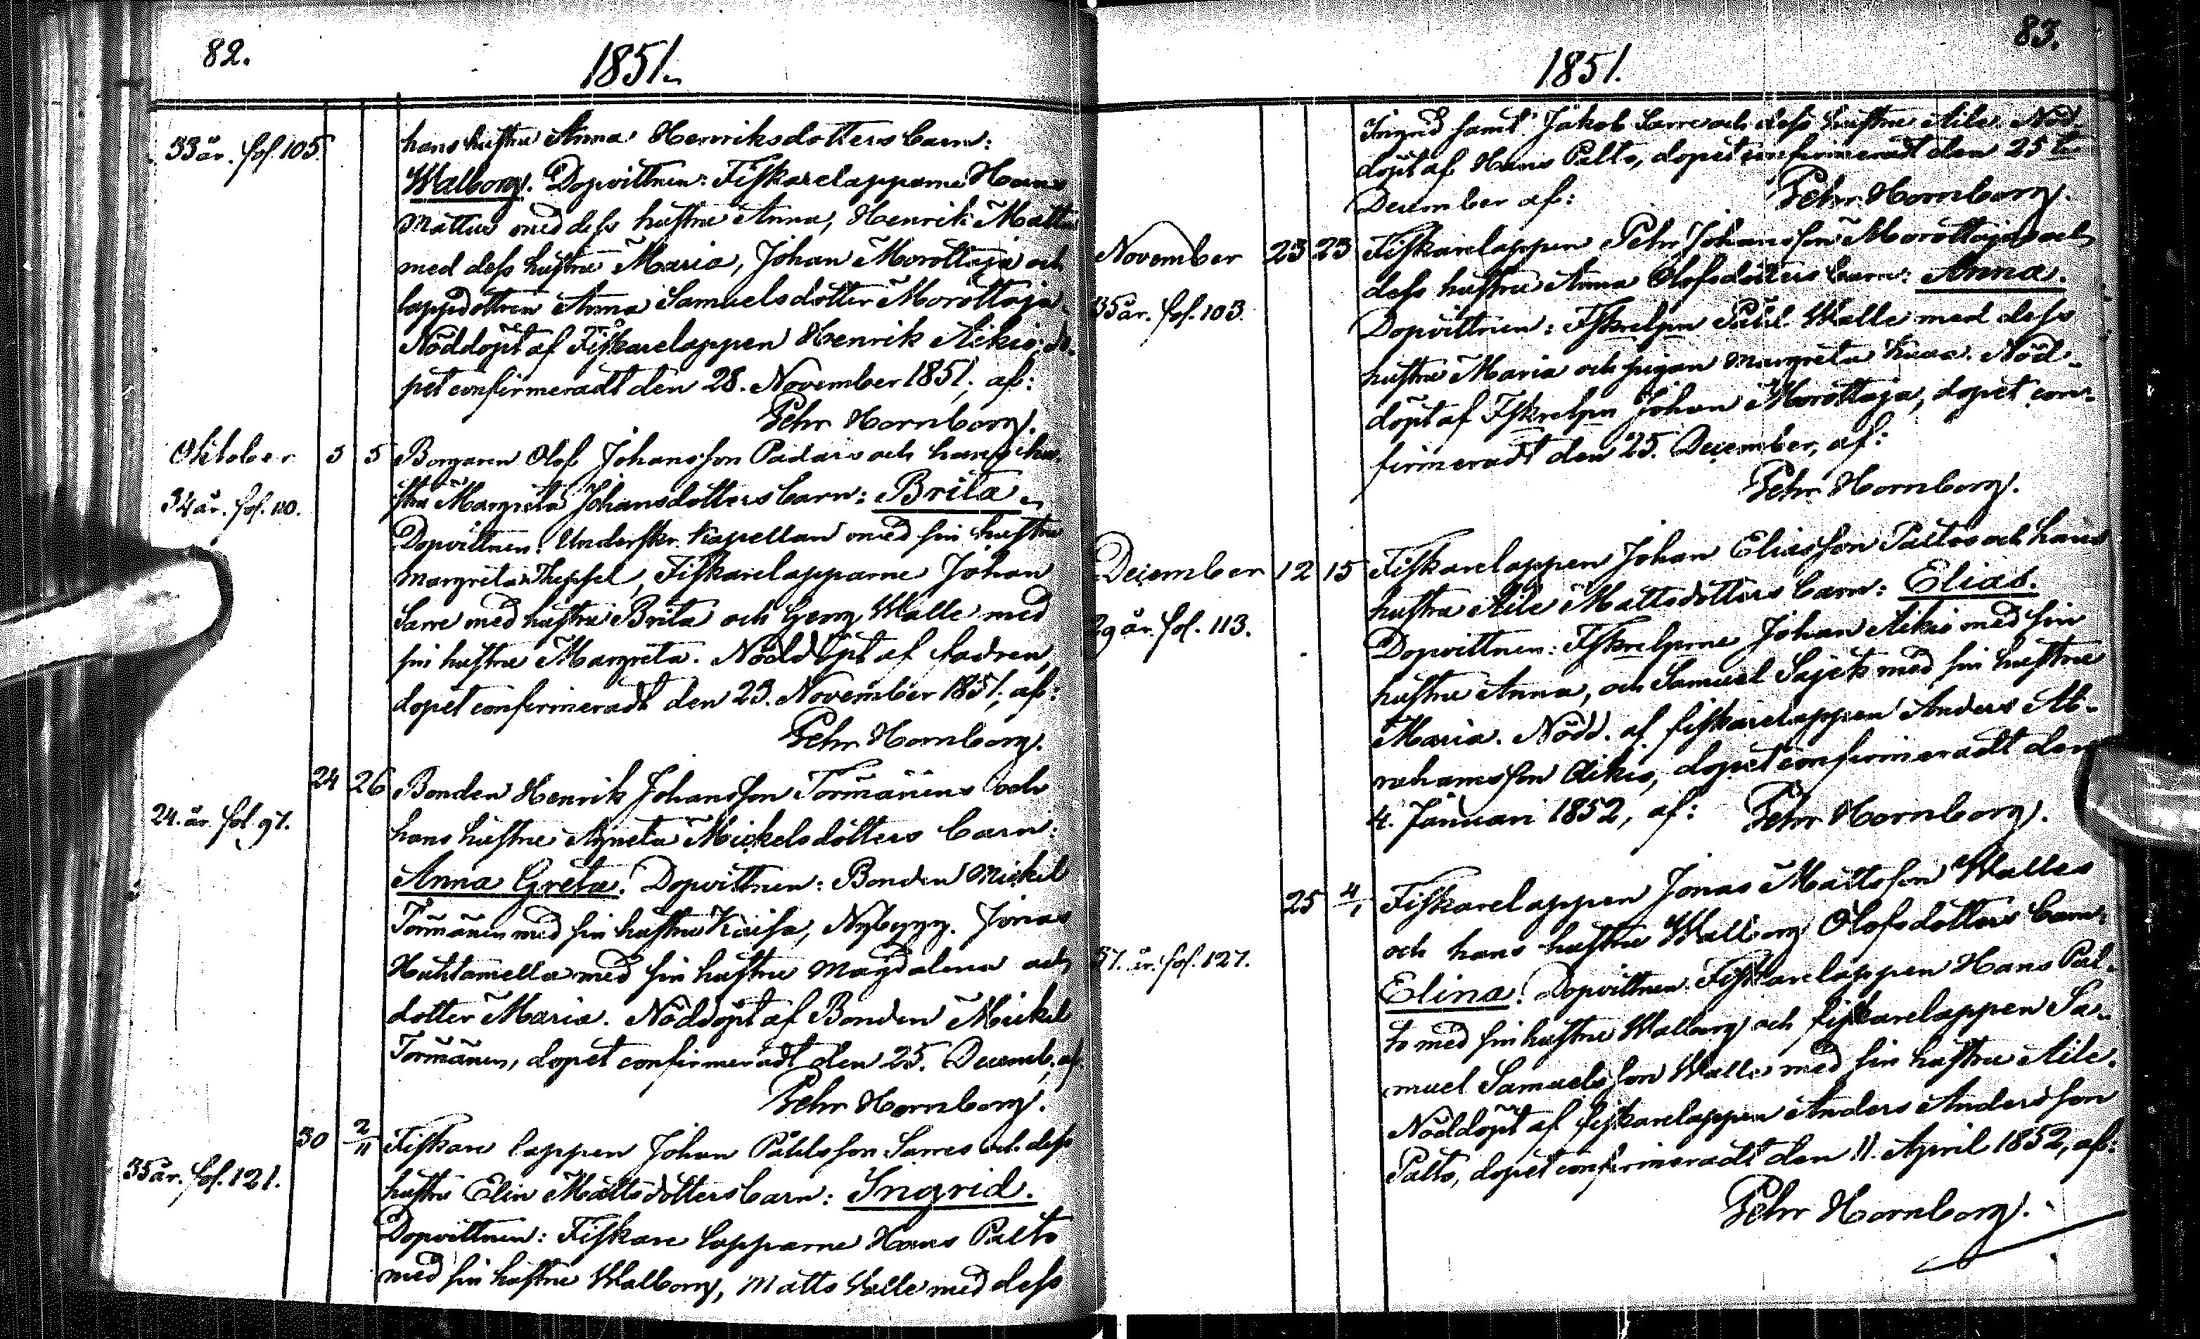 82.
1851.
33 år. fol. 105.
hans hustru Anna Henriksdotters barn:
Walborg. Dopvittnen: Fiskarelapparne Hans
Mattus med dess hustru Anna, Henrik Mattus
med dess hustru Maria, Johan Morottaja och
lappdottren Anna Samuelsdotter Morottaja.
Nöddöpt af Fiskarelappen Henrik Aikio, do-
pet confirmeradt den 28. November 1851, af:
Pehr Hornborg.
Oktober 5 5 Borgaren Olof Johansson Padars och hans hu-
34 år. fol. 110.
stru Margreta Johansdotters barn: Brita.
Dopvittnen: Underskr. Kapellan med sin hustru
Margreta, Fiskarelapparne Johan
Sarre med hustru Brita och Georg Walle med
sin hustru Margreta. Nöddöpt af fadren,
dopet confirmeradt den 23. November 1851, af:
Pehr Hornborg.
24 26 Bonden Henrik Johansson Törmänens och
24. år. fol. 97.
hans hustru Agneta Mickelsdotters barn:
Anna Greta. Dopvittnen: Bonden Mickel
Törmänen med sin hustru Kaisa, Nybygg. Jonas
Huhtamella med sin hustru Magdalena och
dotter Maria. Nöddöpt af Bonden Mickel
Törmänen, dopet confirmeradt den 25. Decemb., af:
Pehr Hornborg.
30 2/11 Fiskare lappen Johan Påhlsson Sarres och dess
35 år. fol. 121.
hustru Elin Mattsdotters barn: Ingrid.
Dopvittnen: Fiskare lapparne Hans Palto
med sin hustru Walborg, Matts Walle med dess
83.
1851.
Ingrid samt Jakob Sarre och dess hustru Aile. Nöd-
döpt af Hans Palto, dopet confirmeradt den 25
December af: Pehr Hornborg.
November 23 23 Fiskarelappen Pehr Johansson Morottajas och
35 år. fol. 103.
dess hustru Anna Olofsdotters barn: Anna.
Dopvittnen: Fskrelpn Påhl Walle med dess
hustru Maria och pigan Margreta Kuua. Nöd-
döpt af Fskrelpn Johan Morottaja, dopet con-
firmeradt den 25. December, af:
Pehr Hornborg.
December 12 15 Fiskarelappen Johan Eliasson Paltos och hans
29 år. fol. 113.
hustru Aile Mattsdotters barn: Elias.
Dopvittnen: Fskrelpne Johan Aikio med sin
hustru Anna, och Samuel Sajets med sin hustru
Maria. Nödd. af fiskarelappen Anders Ab-
rahamsson Aikio, dopet confirmeradt den
4. Januari 1852, af: Pehr Hornborg.
25 4/1 Fiskarelappen Jonas Mattsson Walles
37. år. fol. 127.
och hans hustru Walborg Olofsdotters barn:
Elina. Dopvittnen: Fiskarelappen Hans Pal-
to med sin hustru Walborg och fiskarelappen Sa-
muel Samuelsson Walle med sin hustru Aile.
Nöddöpt af fiskarelappen Anders Andersson
Palto, dopet confirmeradt den 11. April 1852, af:
Pehr Hornborg.